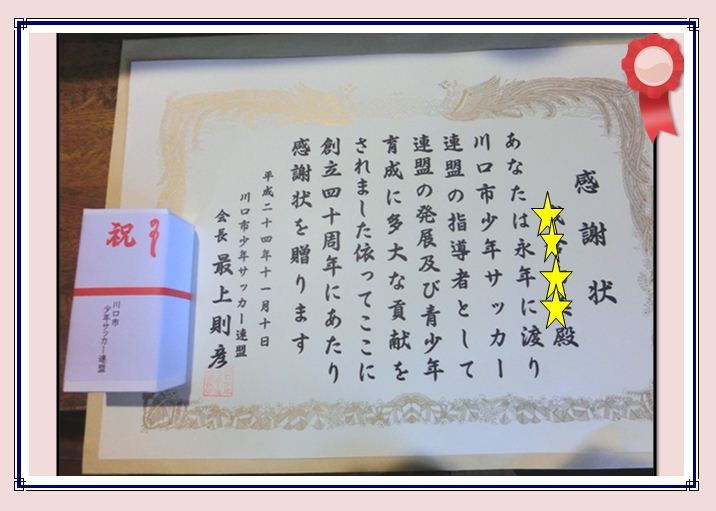 感謝状
殿
あなたは永年に渡り
川口市少年サッカー
連盟の指導者として
連盟の発展及び青少年
育成に多大な貢献を
されました依ってここに
創立四十周年にあたり
感謝状を贈ります
平成二十四年十一月十日
川口市少年サッカー連盟
会長 最上則彦
祝
川口市
少年サッカー連盟